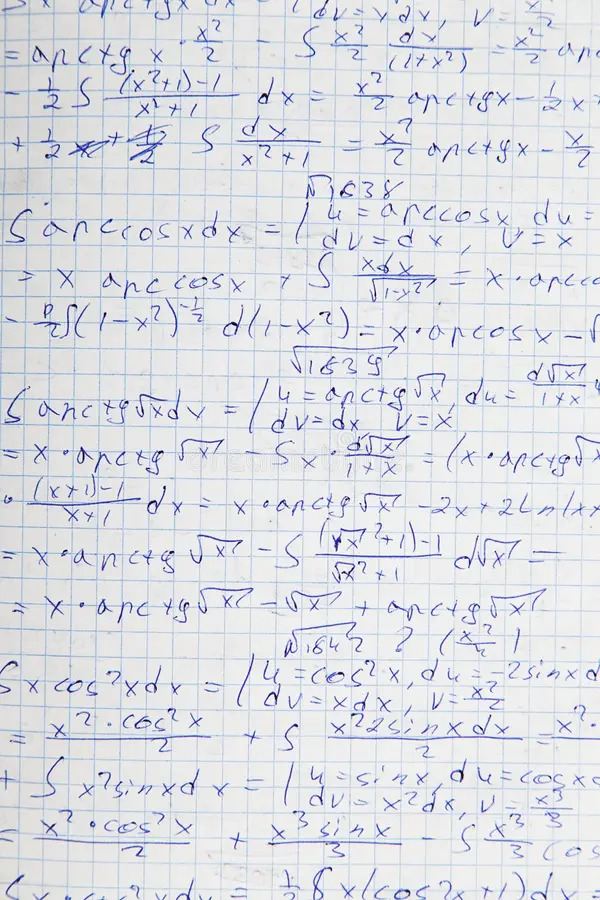 ∫x arctgx dx = | dv = x dx, v = x²/2
= arctg x · x²/2 - ∫ x²/2 dx/(1+x²) = x²/2 arc
- 1/2 ∫ ((x²+1)-1)/(x²+1) dx = x²/2 arctgx - 1/2 x +
+ 1/2 ∫ dx/(x²+1) = x²/2 arctgx - x/2
√1638
∫ arccosxdx = | u = arccosx, du =
dv = dx, v = x
= x arccosx + ∫ xdx/√(1-x²) = x · arcco
- ∫(1-x²)^(-1/2) d(1-x²) = x · arcosx - √
√1639
∫ arctg√x dx = | u = arctg√x, du = d√x/(1+x)
dv = dx, v = x
= x · arctg√x - ∫ x · d√x/(1+x) = (x · arctg√x
· ((x+1)-1)/(x+1) dx = x · arctg√x - 2x + 2Ln|x+
= x · arctg√x - ∫ ((√x²+1)-1)/(√x²+1) d√x =
= x · arctg√x - √x + arctg√x
√1642 ? (x²/4)
∫x cos²xdx = | u = cos²x, du = -2sinxd
dv = xdx, v = x²/2
= (x² · cos²x)/2 + ∫ (x² 2sinxdx)/2 = x² ·
+ ∫ x²sinxdx = | u = sinx, du = cosx
dv = x²dx, v = x³/3
= (x² · cos²x)/2 + (x³ sinx)/3 - ∫ x³/3 cos
= 1/2 ∫ x(cos2x+1)dx =